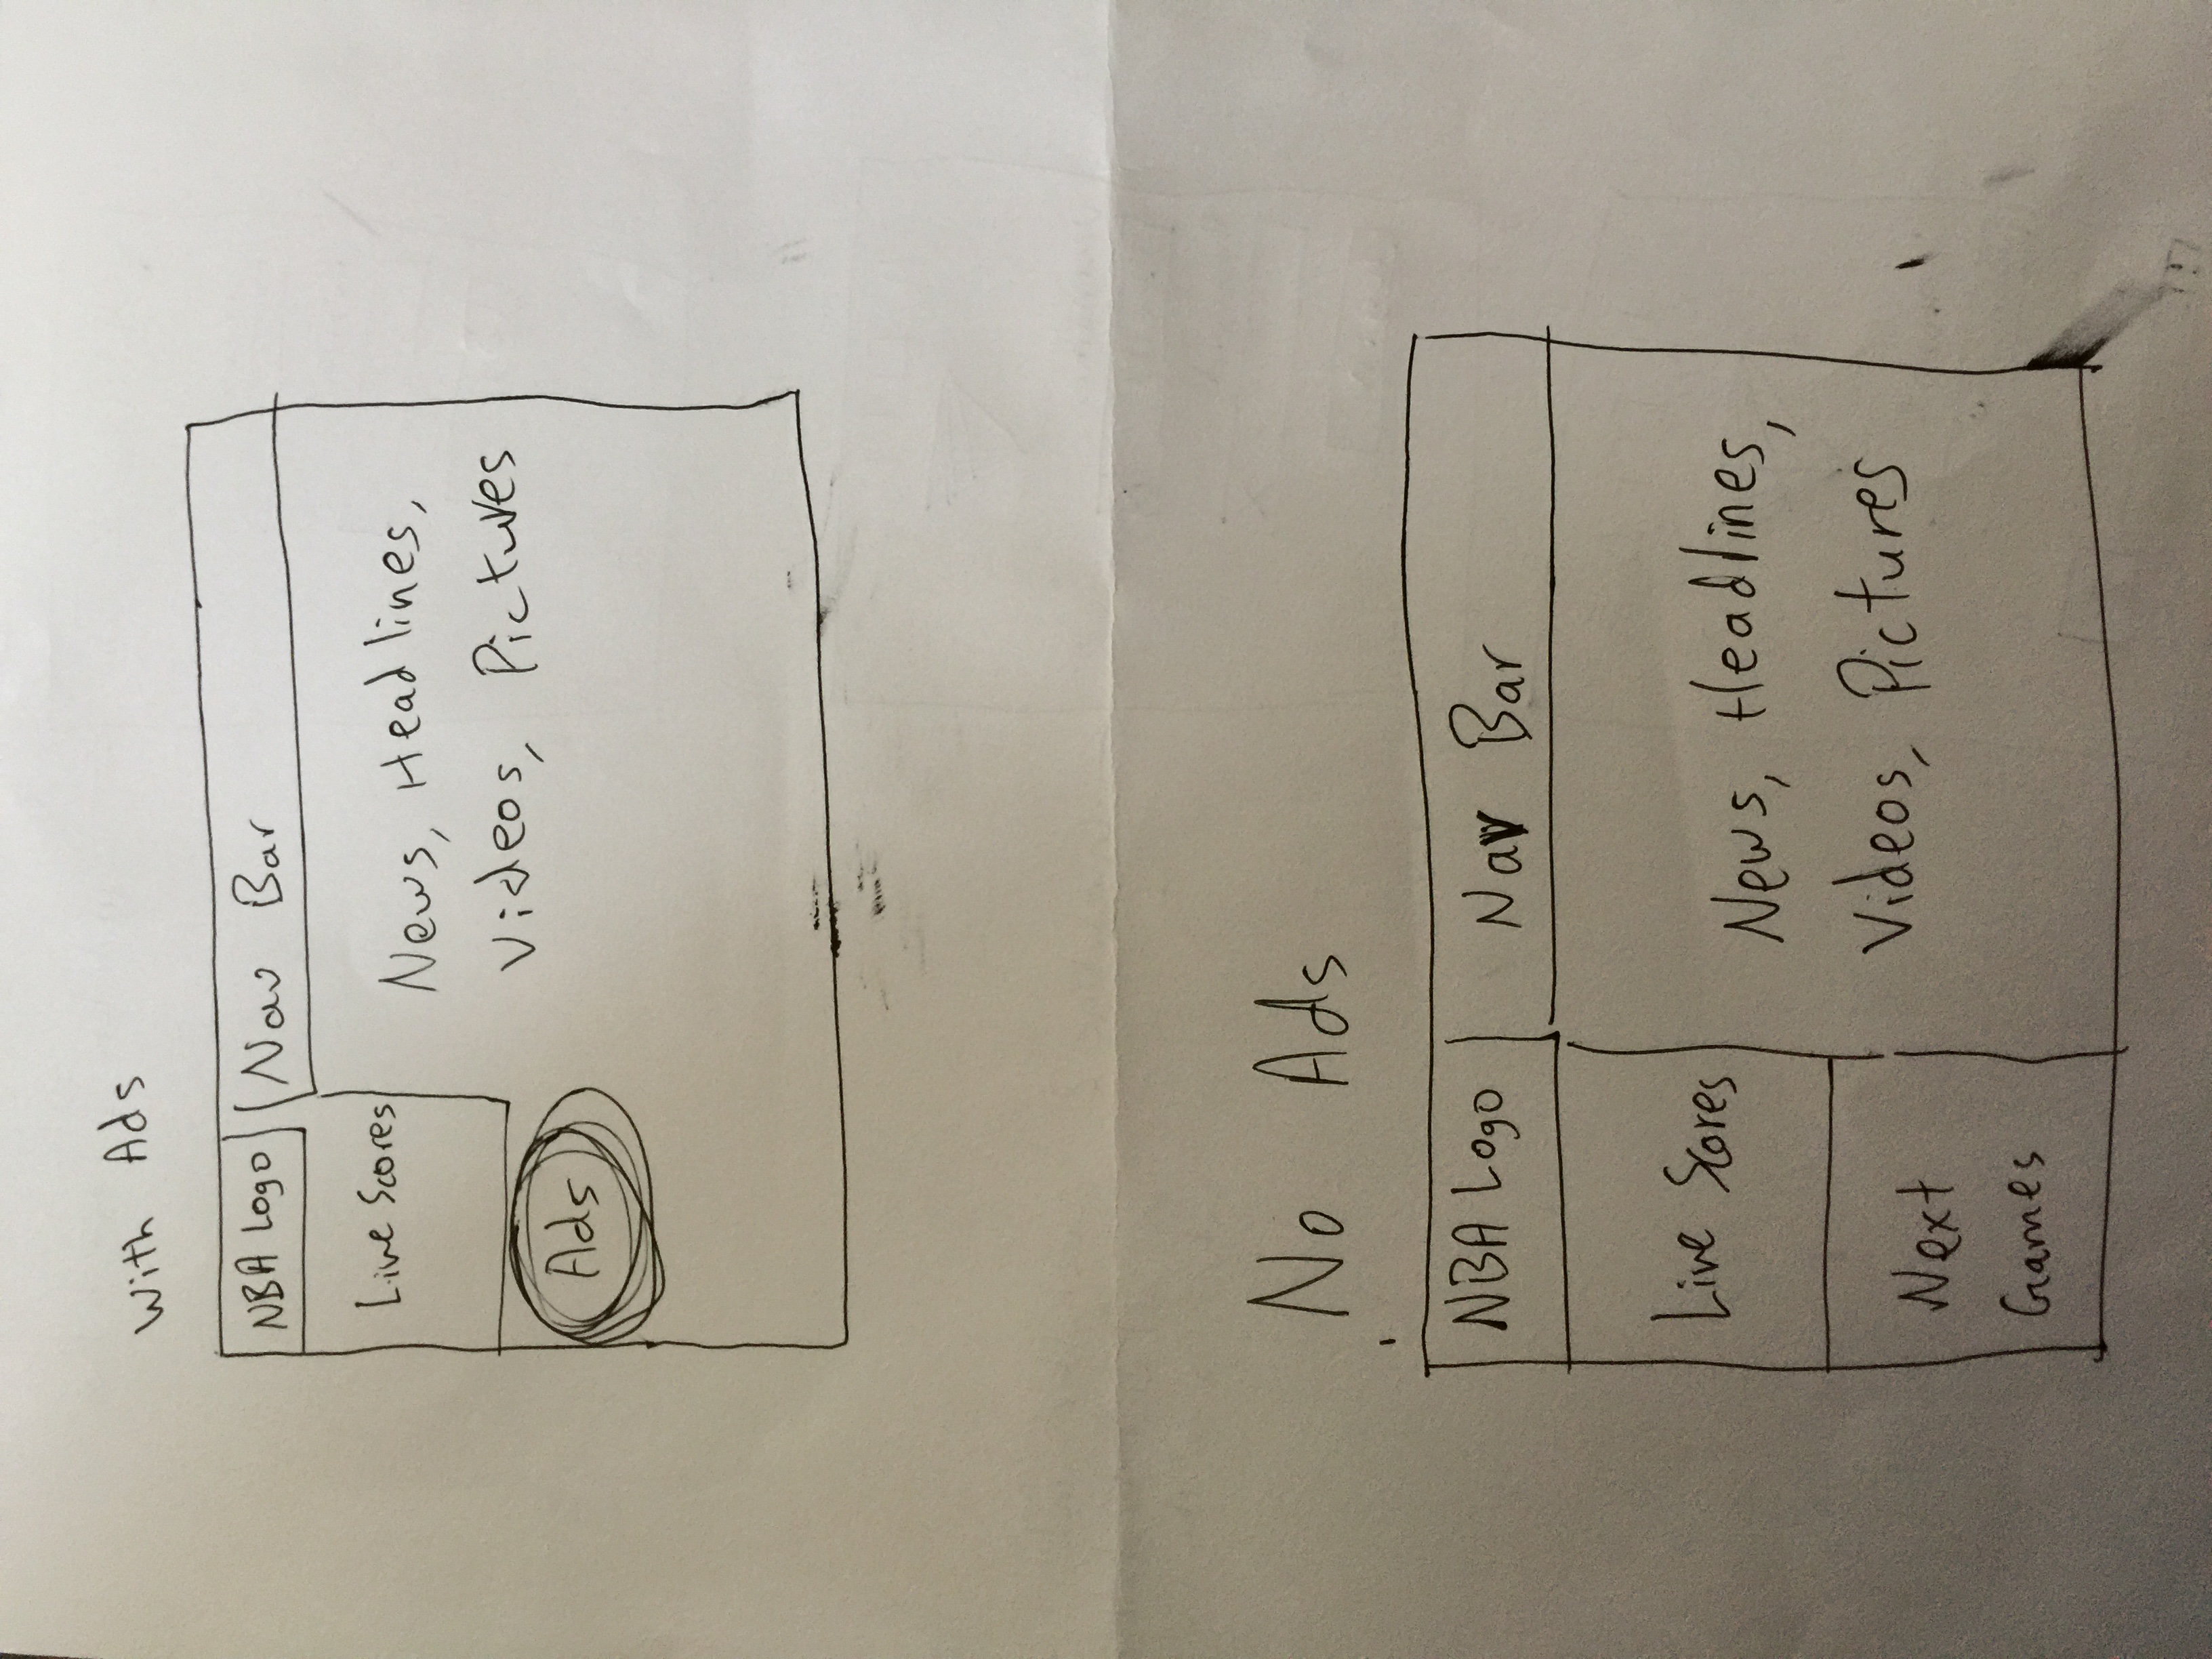 With Ads
NBA Logo Nav Bar
Live Scores
News, Headlines,
Videos, Pictures
Ads
No Ads
NBA Logo Nav Bar
Live Scores
News, Headlines,
Videos, Pictures
Next
Games